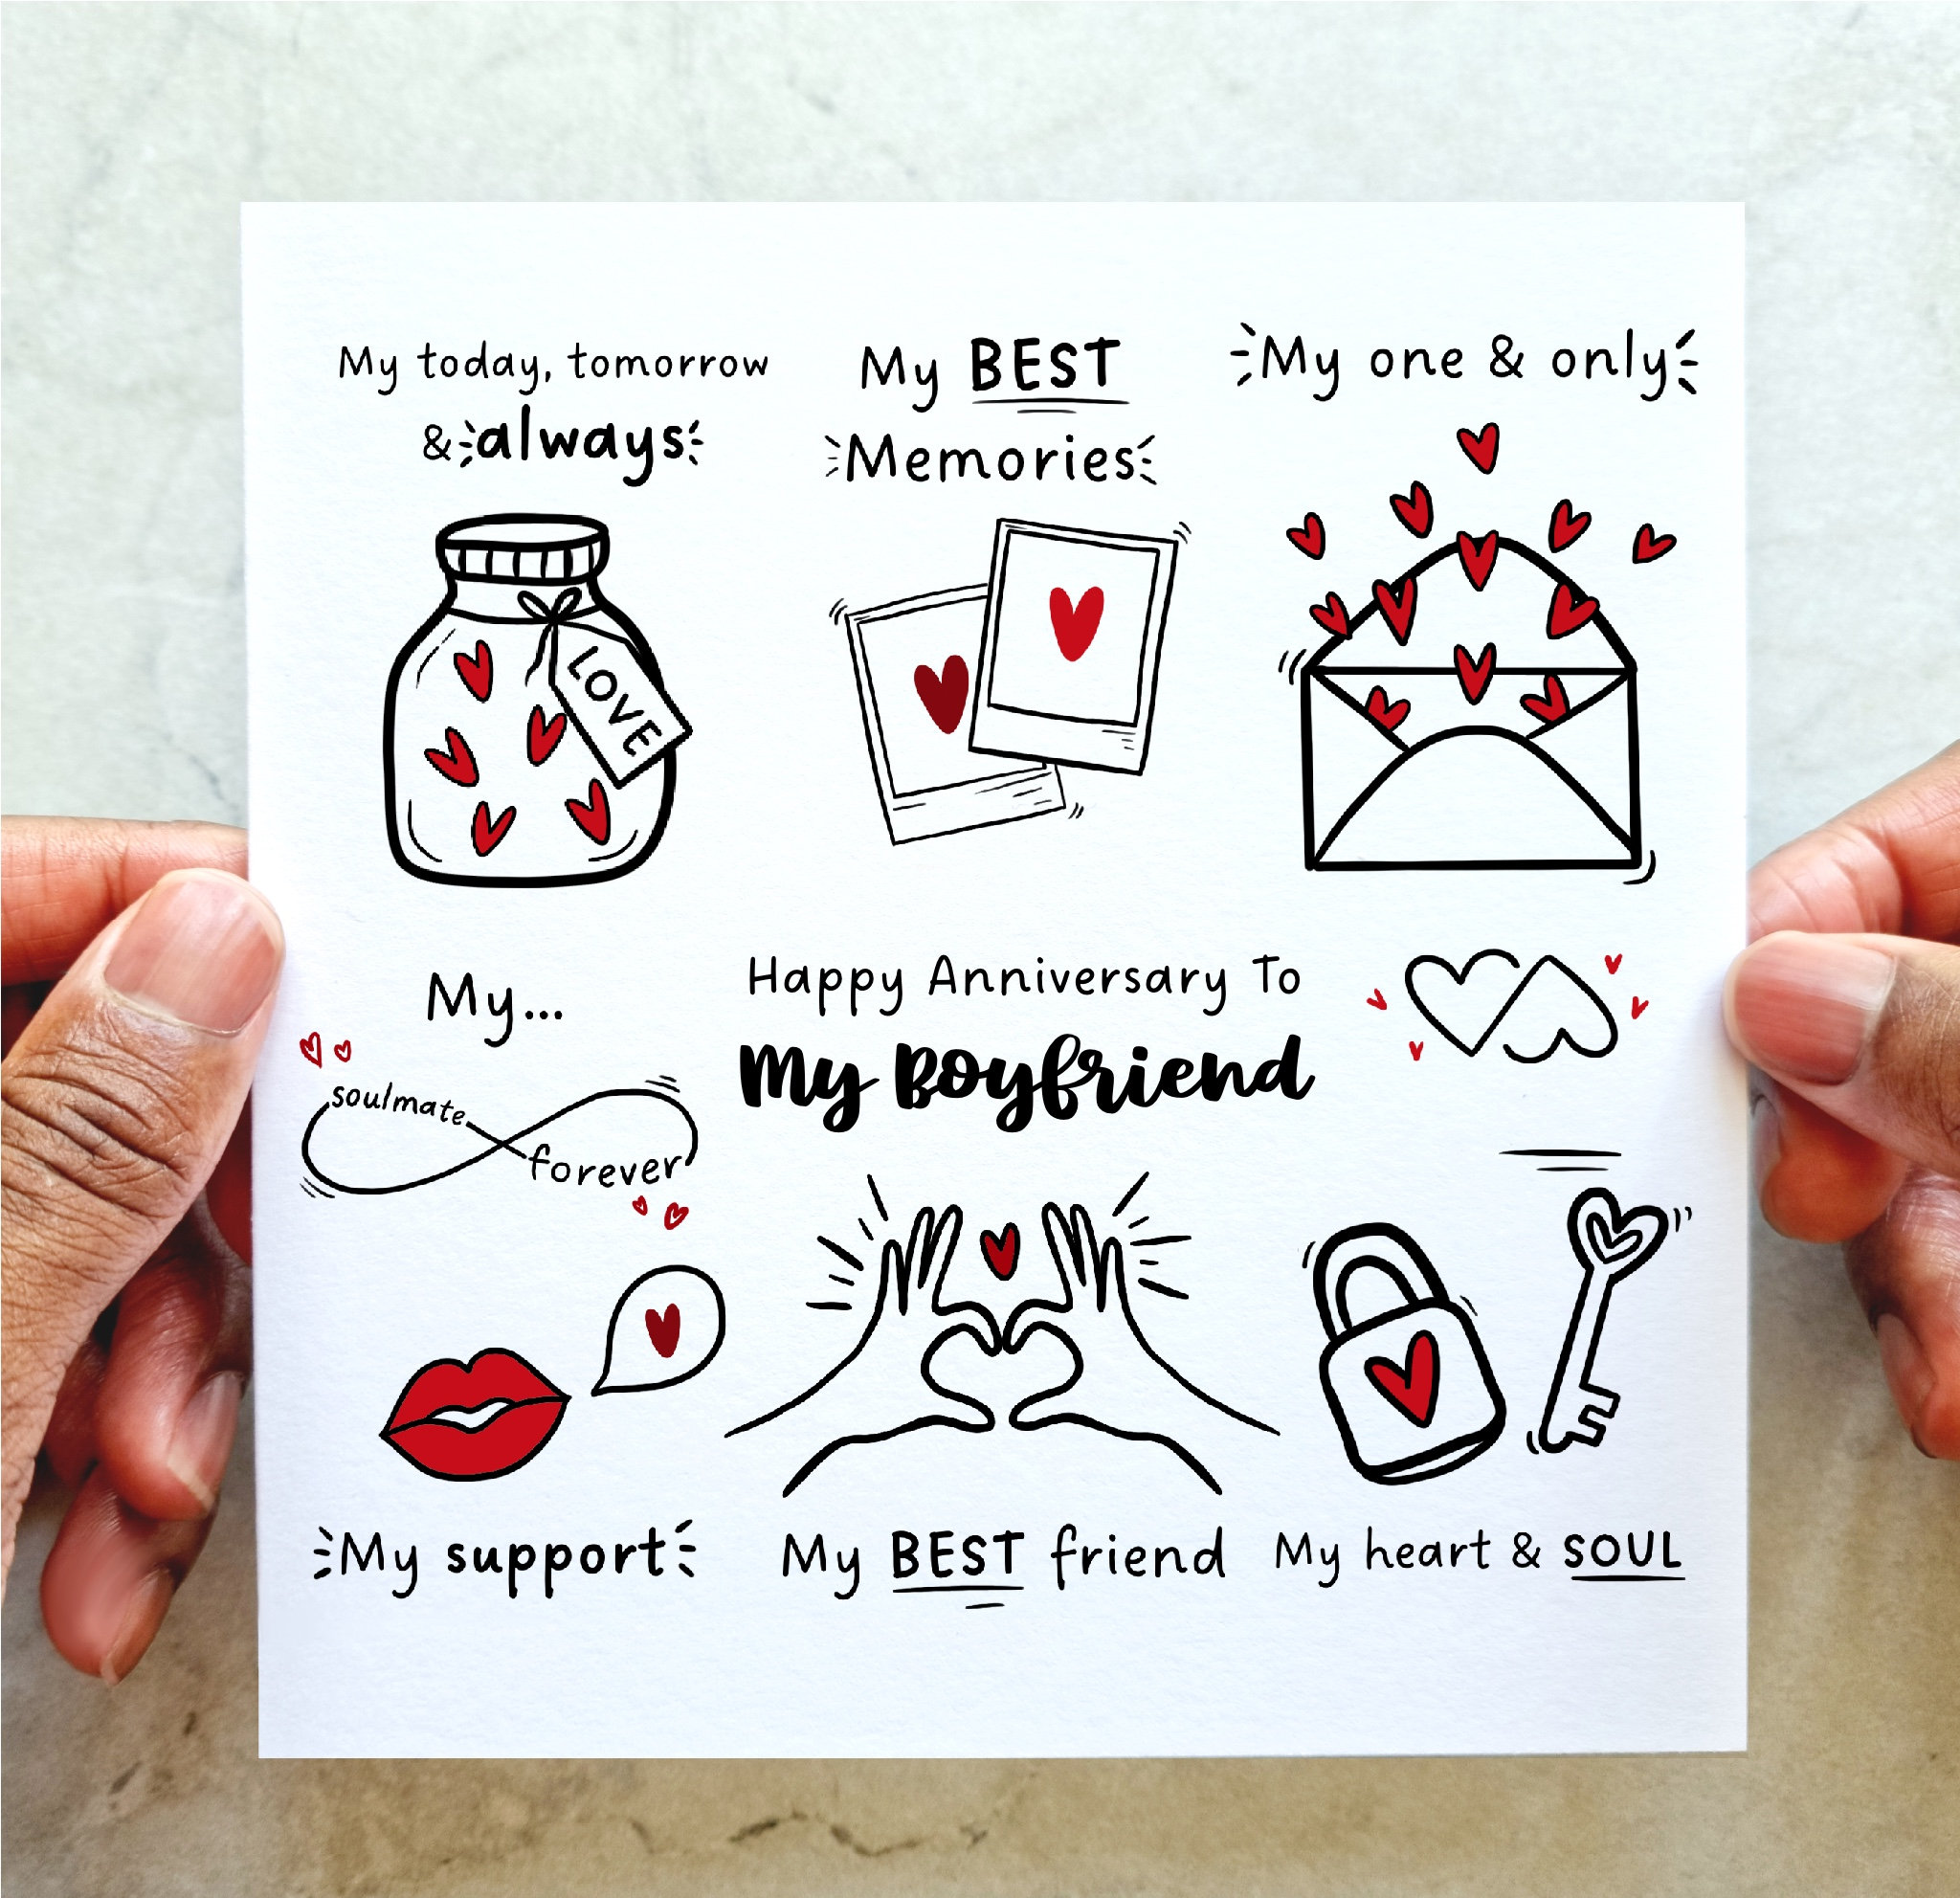 My today, tomorrow
& always
My BEST
Memories
My one & only
LOVE
My...
soulmate
forever
Happy Anniversary To
My Boyfriend
My support
My BEST friend
My heart & SOUL